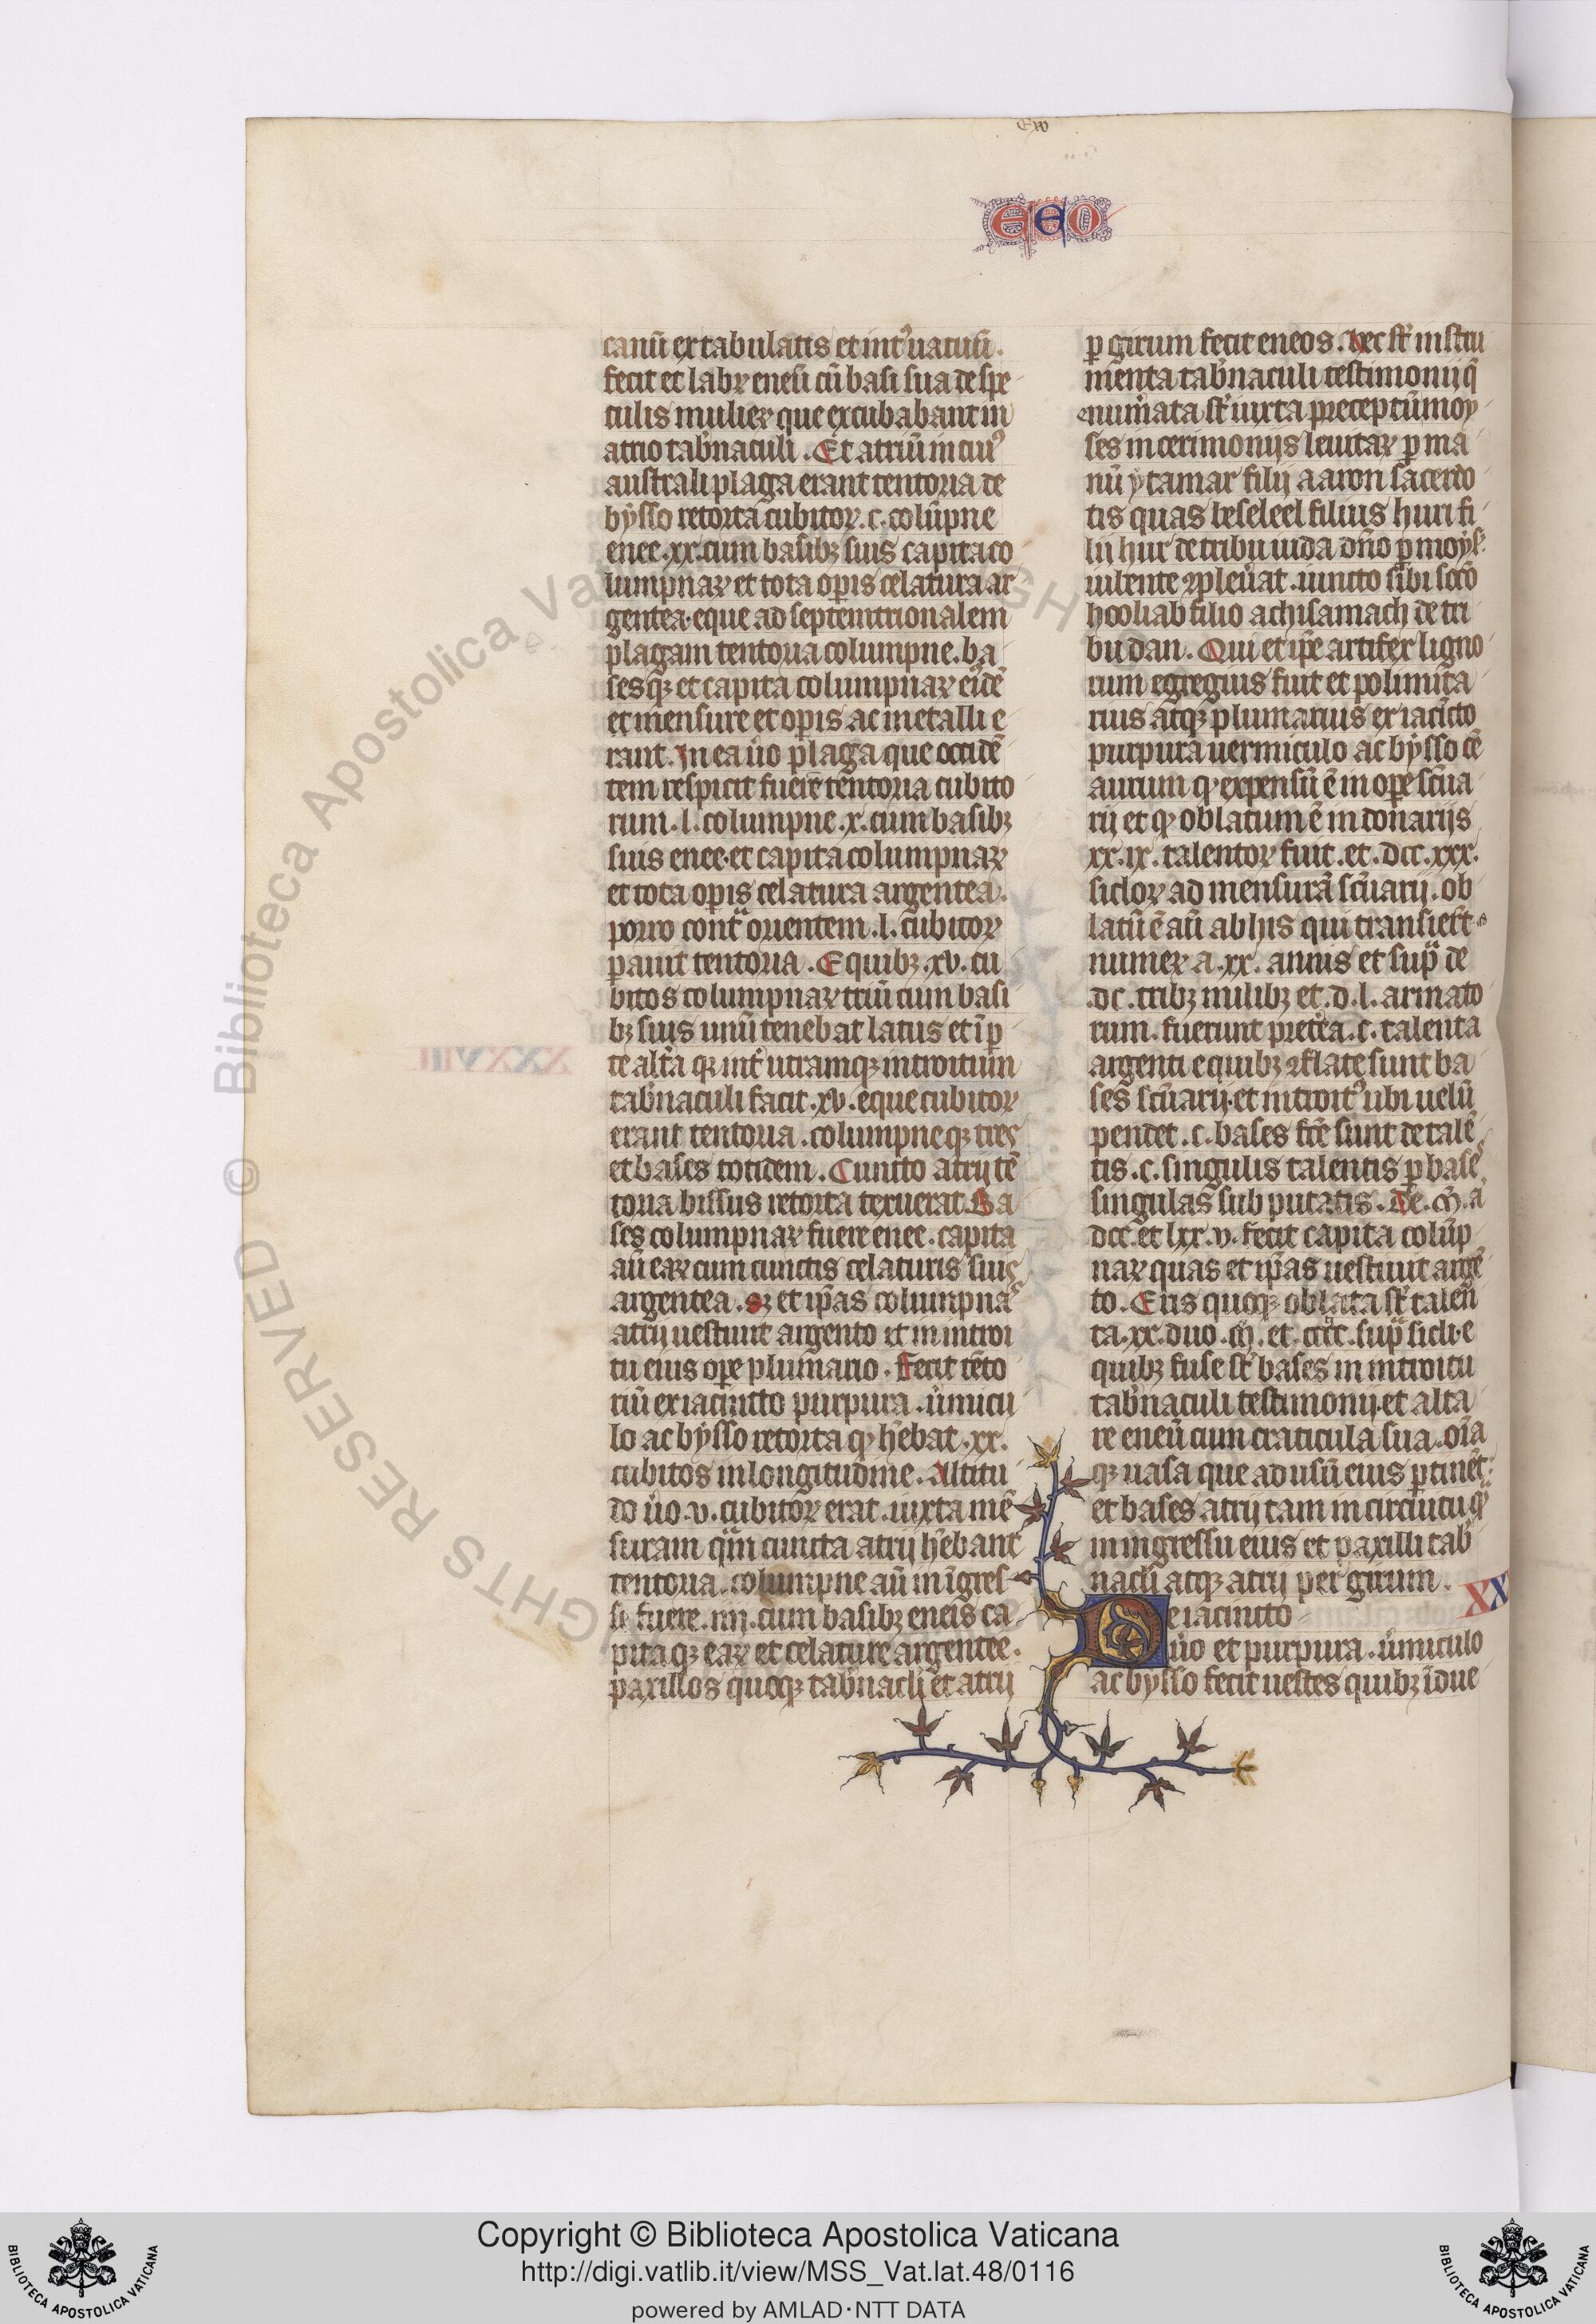 Exo
EEO
canū ex tabulatis et int᷑uacuū.
fecit et labꝝ eneū cū basi sua de spe
culis mulieꝝ que excubabant in
atrio tab̄naculi. Et atriū in cuiꝰ
australi plaga erant tentoria de
bysso retorta cubitoꝝ .c. colūpne
enee .xx. cum basibꝫ suis capita co
lumpnaꝝ et tota op̄is celatura ar
gentea. eque ad septemtrionalem
plagam tentoria columpne. ba
sesqꝫ et capita columpnaꝝ eiꝰdē
et mensure et op̄is ac metalli e
rant. In ea u̇o plaga que occidē
tem respicit fuerr̄ tentoria cubito
rum .l. columpne .x. cum basibꝫ
suis enee. et capita columpnaꝝ
et tota op̄is celatura argentea.
porro contᷓ orientem .l. cubitoꝝ
pauit tentoria. E quibꝫ .xv. cu
bitos columpnaꝝ triū cum basi
bꝫ suis unū tenebat latus et ī ꝑ
te alt̄a qꝫ int̄ utramqꝫ introitum
tab̄naculi facit .xv. eque cubitoꝝ
erant tentoria. columpneqꝫ tres
et bases totidem. Cuncto atrij tē
toria bissus retorta texuerat. Ba
ses columpnaꝝ fuere enee. capita
aū eaꝝ cum cunctis celaturis suis
argentea. Sꝫ et ip̄as columpnas
atrij uestiuit argento et in introi
tu eius op̄e plumario. Fecit tēto
riū ex iacincto purpura. u̇micu
lo ac bysso retorta qꝫ hēbat .xx.
cubitos in longitudine. Altitu
do u̇o .v. cubitoꝝ erat. iuxta mē
suram qᷓm cuncta atrij hēbant
tentoria. columpne aū in īgres
su fuere .iiij. cum basibꝫ eneis ca
pitaqꝫ eaꝝ et celature argentee.
paxillos quoqꝫ tab̄nacli et atrij
ꝑ girum fecit eneos. Hec st̄ instru
menta tab̄naculi testimonij q̄
enum̄ata st̄ iuxta preceptū moy
ses in cerimonijs leuitaꝝ ꝑ ma
nū ytamar filij aaron sacerdo
tis quas beseleel filius huri fi
lij hur de tribu iuda dn̄o ꝑ moysē
iubente ꝯpleu̇at. iuncto sibi socio
hooliab filio achisamach de tri
bu dan. Qui et ip̄e artifex ligno
rum egregius fuit et polimita
rius atqꝫ plumarius ex iacīcto
purpura uermiculo ac bysso oē
aurum qꝫ expensū ē in op̄e scūa
rij et qꝫ oblatum ē in donarijs
xx. ix. talentoꝝ fuit. et .dcc. xxx.
sicloꝝ ad mensurā scūarij. ob
latū ē aū ab his qui transiert̄
numeꝝ a .xx. annis et supᷓ de
.dc. tribꝫ milibꝫ et .d.l. armato
rum. fuerunt pret̄ea .c. talenta
argenti e quibꝫ ꝯflate sunt ba
ses scūarij. et introitꝰ ubi uelū
pendet .c. bases fc̄e sunt de talē
tis .c. singulis talentis ꝑ basēs
singulas sub putatis. de .m̄. a
dcc. et lxx.v. fecit capita colūp
naꝝ quas et ip̄as uestiuit argē
to. Eris quoqꝫ oblata st̄ talen̄
ta .xx. duo .m̄. et .cccc. supᷓ sicli. e
quibꝫ fuse st̄ bases in introitu
tab̄naculi testimonij. et alta
re eneū cum craticula sua. oīa
qꝫ uasa que ad usū eius ꝑtinēt.
et bases atrij tam in circuitu qᷓ
in ingressu eius et paxilli tab̄
nacli atqꝫ atrij per girum.
XX
De iacincto
u̇o et purpura. u̇miculo
ac bysso fecit uestes quibꝫ īdue
© Biblioteca Apostolica Vaticana
RIGHTS RESERVED
Copyright © Biblioteca Apostolica Vaticana
http://digi.vatlib.it/view/MSS_Vat.lat.48/0116
powered by AMLAD･NTT DATA
BIBLIOTECA APOSTOLICA VATICANA
BIBLIOTECA APOSTOLICA VATICANA